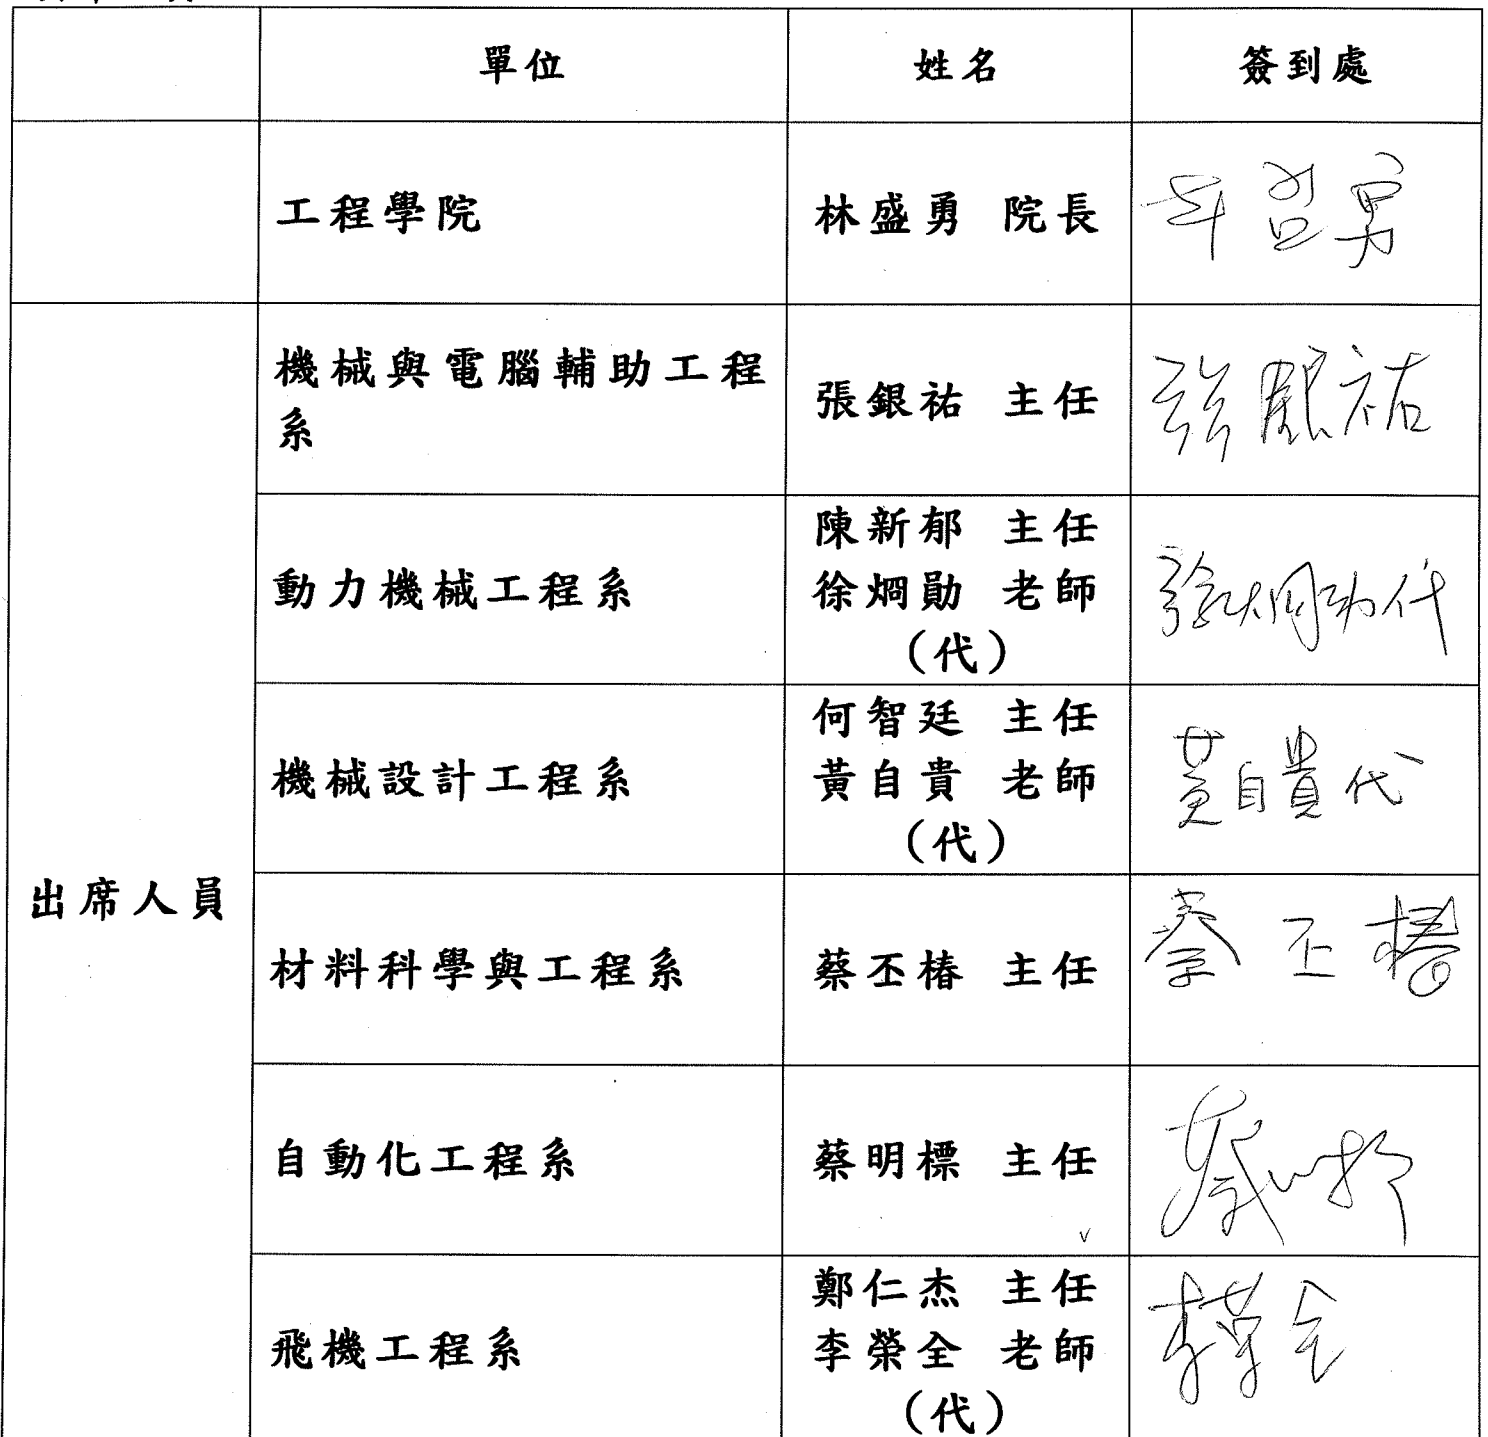 單位 姓名 簽到處
工程學院 林盛勇 院長
機械與電腦輔助工程
系
張銀祐 主任 張銀祐
動力機械工程系
陳新郁 主任
徐烱勛 老師
(代)
機械設計工程系
何智廷 主任
黃自貴 老師
(代)
黃自貴代
出席人員
材料科學與工程系 蔡丕椿 主任 蔡丕椿
自動化工程系 蔡明標 主任
飛機工程系
鄭仁杰 主任
李榮全 老師
(代)